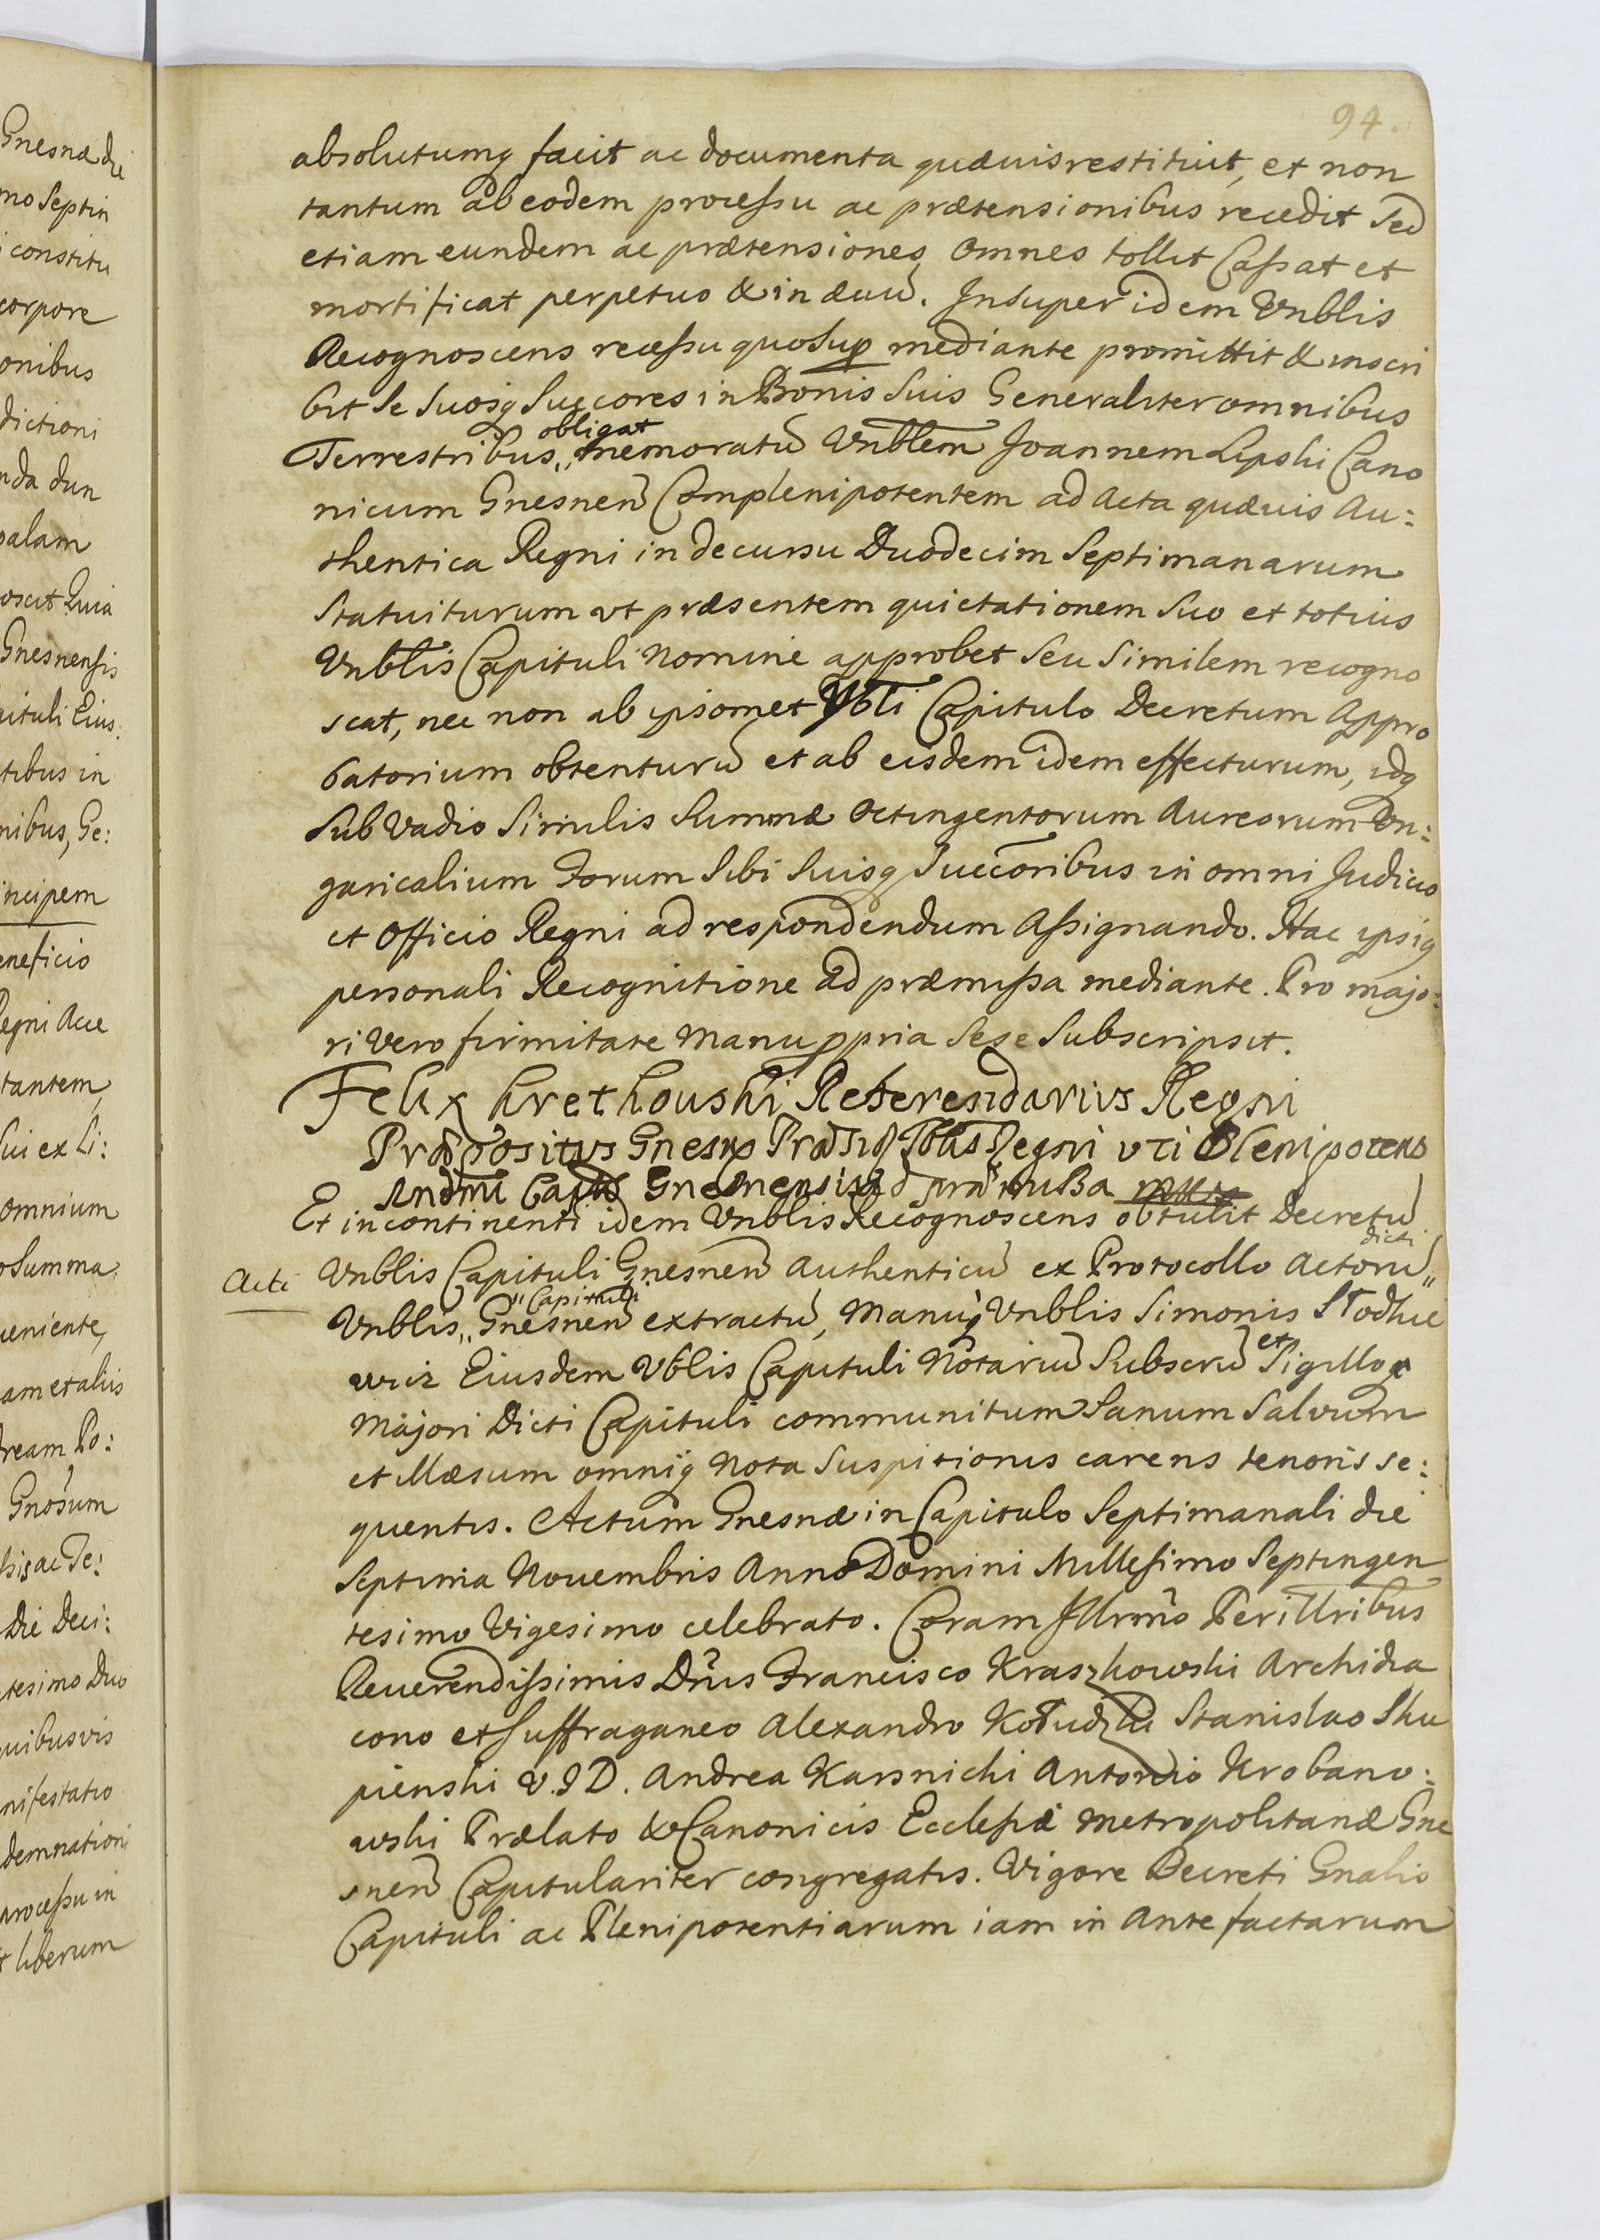 Gnesnæ die
mo Septin
constitu
corpore
onibus
dictioni
nda dun
palam
oscit Quia
Gnesnensis
pituli Eius
tibus in
nibus, Ge:
incipem
eneficio
Regni Acce
tantem,
Sui ex Li:
omnium
o Summa
ueniente,
am et aliis
ream Po:
Gnosum
his ac Te:
Die Deci:
tesimo Duo
uibusvis
nifestatio
demnationi
processu in
t liberum
94.
absolutumq facit ac documenta quævis restituit, et non
tantum ab eodem processu ac prætensionibus recedit Sed
etiam eundem ac prætensiones omnes tollit Cassat et
mortificat perpetuo & in ævū. Insuper idem Vnblis
Recognoscens recessu quo Sup mediante promittit & inscri
bit Se Suosq Succores in Bonis Suis Generaliter omnibus
obligat
Terrestribus,, memoratū Vnblem Joannem Lipski Cano
nicum Gnesnen Complenipotentem ad Acta quævis Au:
thentica Regni in decursu Duodecim Septimanarum
Statuiturum vt præsentem quietationem Suo et totius
Vnblis Capituli Nomine approbet Seu Similem recogno
scat, nec non ab ipsomet Vbli Capitulo Decretum Appro
batorium obtenturū et ab eisdem idem effecturum, idq
Sub Vadio Similis Summæ Octingentorum Aureorum Vn:
garicalium Forum Sibi Suisq Succoribus in omni Judicio
et Officio Regni ad respondendum Assignando. Hac ipsiq
personali Recognitione ad præmissa mediante. Pro majo:
ri Vero firmitate Manu ppria Sese Subscripsit.
Felix Kretkouski Referendarivs Regni
Præpositvs Gnesn Præsid Tblis Regni vti Plenipotens
Andmi Caplis Gnesnensis ad præmissa mpp
Et incontinenti idem Vnblis Recognoscens obtulit Decretū
dicti
Acti Vnblis Capituli Gnesnen Authenticū ex Protocollo Actorū,,
,,Capituli
Vnblis,, Gnesnen extractū, Manuq Vnblis Simonis Stodkie
et
wicz Eiusdem Vblis Capituli Notariū Subscrū Sigilloq
Majori Dicti Capituli communitum Sanum Salvum
et Illæsum omniq Nota Suspitionis carens tenoris se:
quentis. Actum Gnesnæ in Capitulo Septimanali die
Septima Nouembris Anno Domini Millesimo Septingen
tesimo Vigesimo celebrato. Coram Illrmo Perillribus
Reuerendissimis Dnis Francisco Kraszkowski Archidia
cono et Suffraganeo Alexandro Kołudzki Stanislao Sku
pienski V.J.D. Andrea Karsnicki Antonio Krobano:
wski Prælato & Canonicis Ecclesiæ Metropolitanæ Gne
snen Capitulariter congregatis. Vigore Decreti Gnalis
Capituli ac Plenipotentiarum iam in Ante factarum